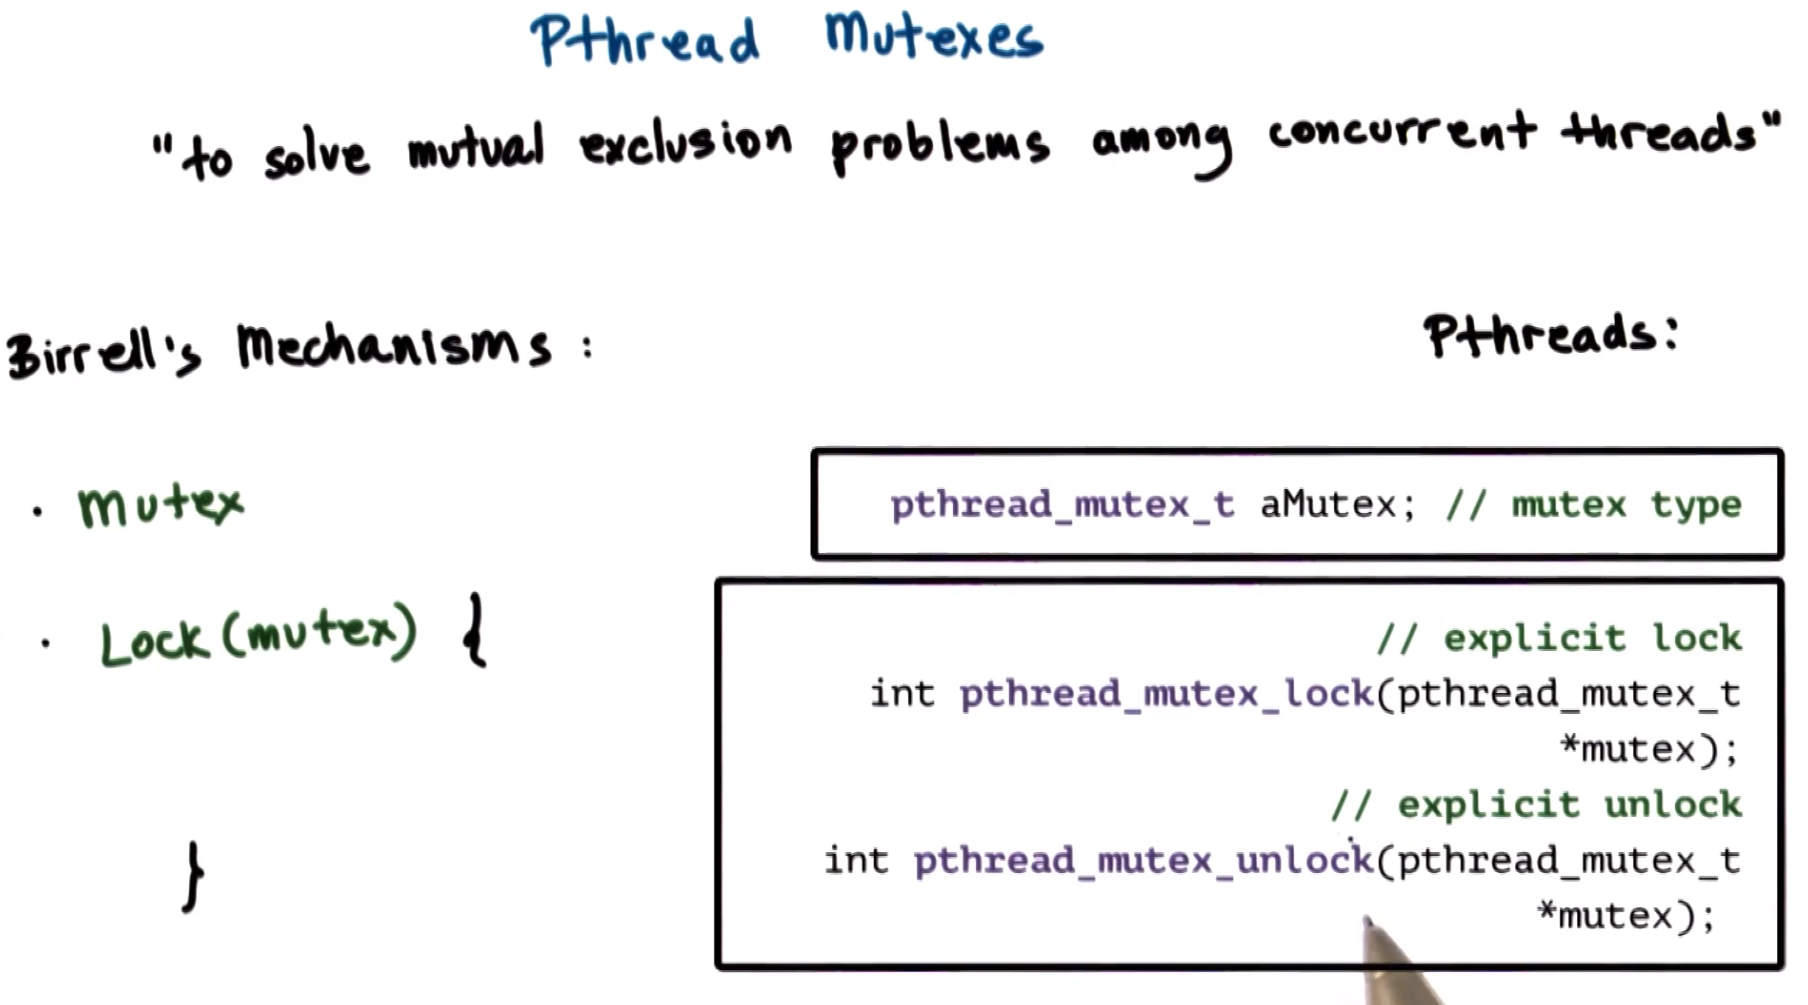 Pthread Mutexes
"to solve mutual exclusion problems among concurrent threads"
Birrell's Mechanisms:
Pthreads:
• Mutex
pthread_mutex_t aMutex; // mutex type
• Lock(mutex) {
// explicit lock
int pthread_mutex_lock(pthread_mutex_t
*mutex);
// explicit unlock
int pthread_mutex_unlock(pthread_mutex_t
*mutex);
}